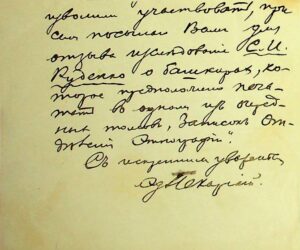 изволили участвовать, при
сем посылаю Вам для
отзыва исследование С. И.
Руденко о башкирах, ко-
торое предположено печа-
тать в одном из очеред-
ных томов „Записок От-
деления Этнографии".
Съ искренним уважением